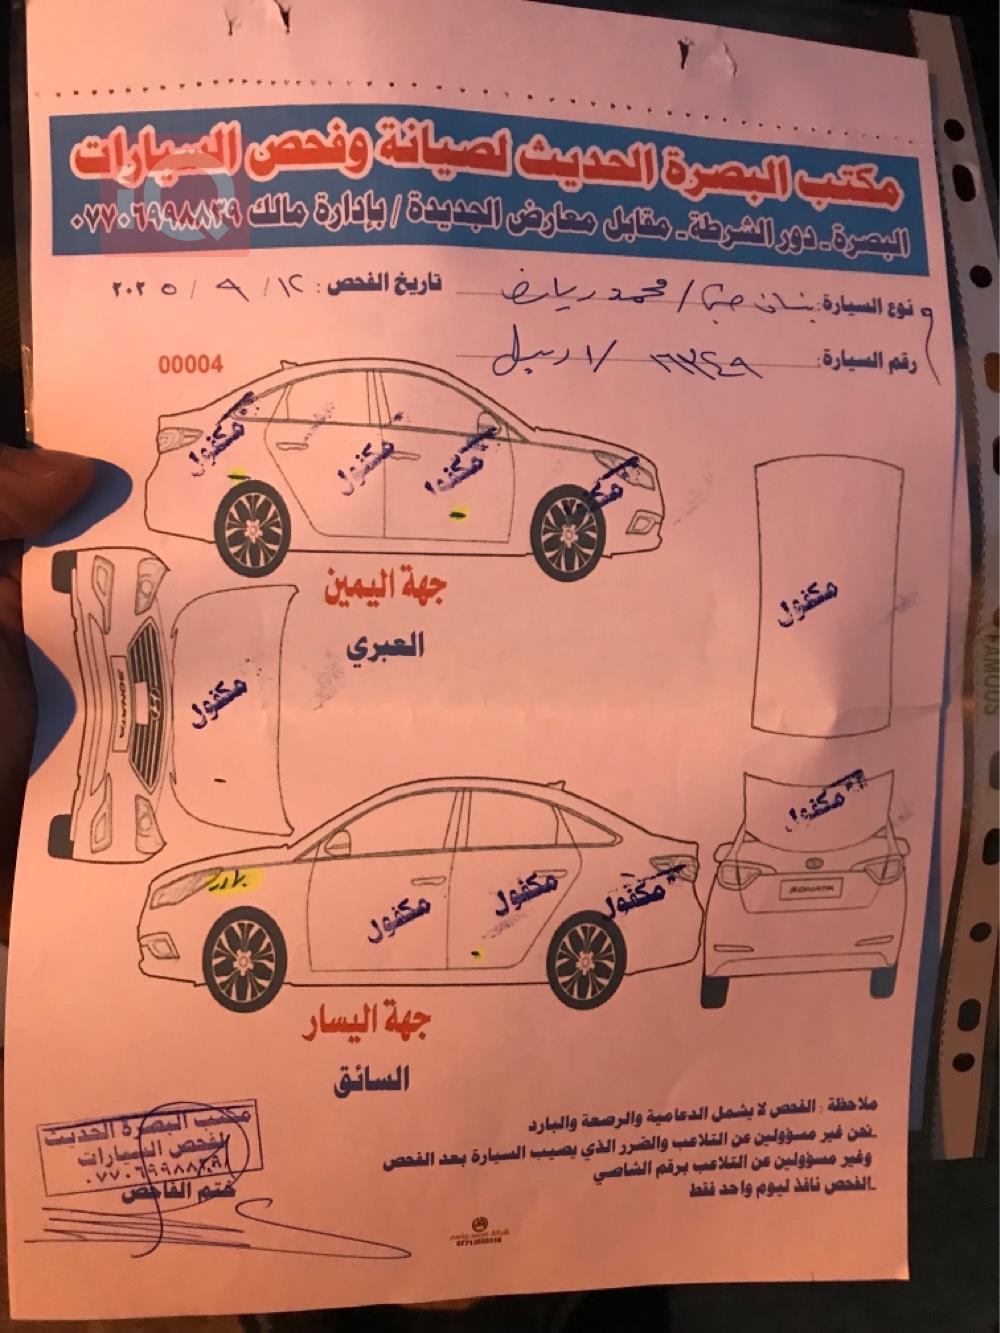 مكتب البصرة الحديث لصيانة وفحص السيارات
البصرة ـ دور الشرطة ـ مقابل معارض الجديدة / بإدارة مالك ٠٧٧٠٦٩٩٨٨٣٩
نوع السيارة: / محمد رياض
تاريخ الفحص: ١٢ / ٩ / ٢٠٢٥
رقم السيارة: / اربيل
00004
مكفول
مكفول
مكفول
مكفول
جهة اليمين
العبري
مكفول
SONATA
مكفول
مكفول
SONATA
بارد
مكفول
مكفول
مكفول
جهة اليسار
السائق
FAMOUS
ملاحظة : الفحص لا يشمل الدعامية والرصعة والبارد
ـنحن غير مسؤولين عن التلاعب والضرر الذي يصيب السيارة بعد الفحص
وغير مسؤولين عن التلاعب برقم الشاصي
ـالفحص نافذ ليوم واحد فقط
مكتب البصرة الحديث
لفحص السيارات
ختم الفاحص